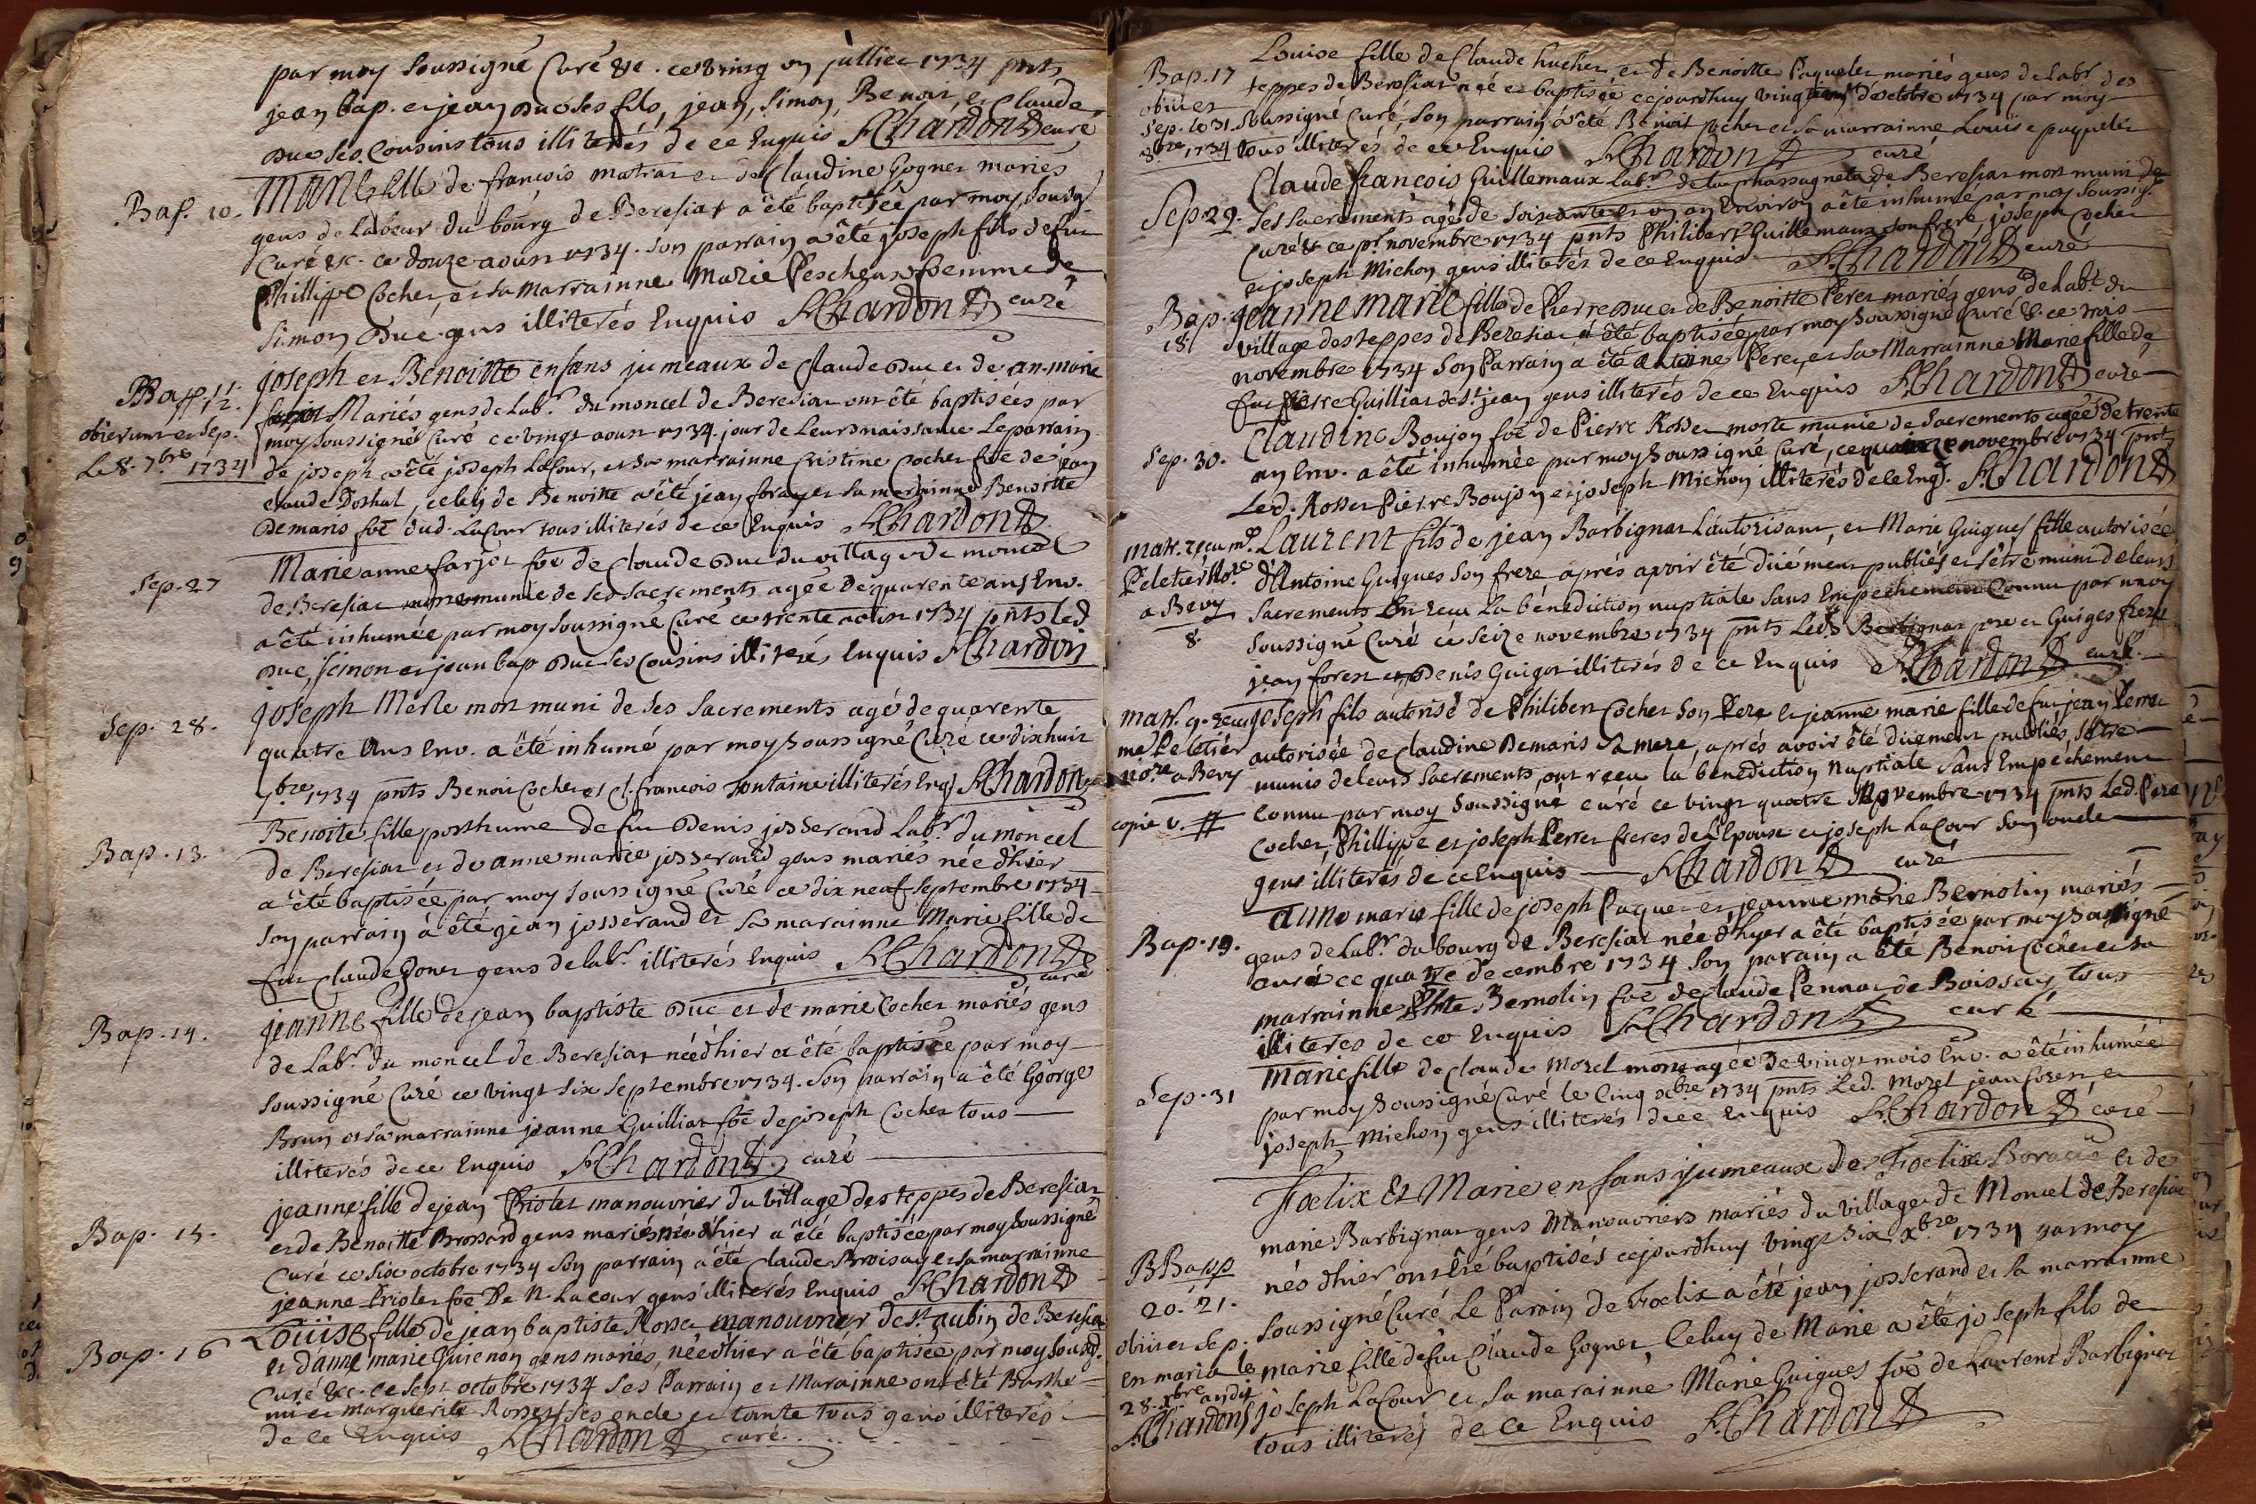 par moy soussigné Curé &c. ce vingt un juillier 1734 pnts
jean bap. et jean Duc ses fils, jean, Simon, Benoit, et Claude
Duc ses Cousins tous illiterés de ce Enquis Chardon curé
Bap. 10. Marie fille de françois matrat et de Claudine Gognet mariés
gens de labeur du bourg de Beresiat a été baptisée par moy sousig
Curé &c. ce douze aoust 1734. son parrain a été joseph fils de fut
Phillippe Cochet, et sa marrainne Marie Pescheur femme de
Simon Duc gens illiterés Enquis Chardon curé
BBap. 11. 12. joseph et Benoitte enfans jumeaux de Claude Duc et de an-marie
farjot Mariés gens de lab.r du moncel de Beresiat ont été baptisées par
obierunt et sep. moy soussigné Curé ce vingt aoust 1734. jour de leurs naissance Le parrain
Le 8. 7bre 1734 de joseph a été joseph Lacour, et sa marrainne Cristine Cochet foe de jean
claude Poshat, celuy de Benoitte a été jean foray et sa marrainne Benoitte
Demaris foe dud. Lacour tous illiterés de ce Enquis Chardon
Sep. 27 Marie anne farjot foe de Claude Duc du village de moncel
de Beresiat munie de ses sacrements agée de quarente ans Env.
a été inhumée par moy soussigné Curé ce trente aoust 1734 pnts led
Duc, Simon et jean bap Duc ses Cousins illiterés Enquis Chardon
Sep. 28. joseph Merle mort muni de ses sacrements agé de quarente
quatre Ans Env. a été inhumé par moy soussigné Curé ce dixhuit
7bre 1734 pnts Benoit Cochet et Cl. françois fontaine illiterés Enq Chardon
Bap. 13. Benoite fille posthume de fut Denis josserand Lab.r du moncel
de Beresiat et de anne marie josserand gens mariés née d'hier
a été baptisée par moy soussigné Curé ce dix neuf septembre 1734
son parrain a été jean josserand et sa marainne Marie fille de
fut Claude Gonet gens de lab.r illiterés Enquis Chardon
curé
Bap. 14. jeanne fille de jean baptiste Duc et de marie Cochet mariés gens
de Lab.r du moncel de Beresiat née d'hier a été baptisée par moy
soussigné Curé ce vingt six septembre 1734. son parrain a été George
Brun et sa marrainne jeanne Guilliat foe de joseph Cochet tous
illiterés de ce Enquis Chardon curé
Bap. 15. jeanne fille de jean Priolet manouvrier du village des teppes de Beresiat
et de Benoitte Brossard gens mariés née d'hier a été baptisée par moy soussigné
Curé ce six octobre 1734 son parrain a été Claude Broisay et sa marrainne
jeanne Priolet foe De N. Lacour gens illiterés Enquis Chardon
Bap. 16 Loüise fille de jean baptiste Rosset manouvrier de St aubin de Beresiat
et d'anne marie Guienon gens mariés, née d'hier a été baptisée par moy soussig.
Curé &c. ce sept octobre 1734 ses Parrain et Marainne ont été Barthe
mi et marguerite Rosset ses oncle et tante tous gens illiterés
de ce Enquis Chardon curé
Bap. 17 Louise fille de Claude huchet et de Benoitte Paquelet mariés gens de lab.r des
obiit et teppes de Beresiat née et baptisée cejourdhuy vingt d'octobre 1734 par moy
sep. le 31. soussigné Curé, son parrain a été Benoit Cochet et sa marrainne Louise paquelet
8.bre 1734 tous illiterés de ce Enquis Chardon curé
Sep. 29. Claude françois Guillemaux lab.r de la Beresiat mort muni de
ses sacrements agé de soixante et un an Environ a été inhumé par moy soussig.
Curé &c ce p.r novembre 1734 pnts Philibert Guillemaux son frere joseph Cochet
et joseph Michon gens illiterés de ce Enquis Chardon curé
Bap. 18. jeanne marie fille de Pierre Duc et de Benoitte Peret mariés gens de lab.r du
village des teppes de Beresiat a été baptisée par moy soussigné Curé &c. ce trois
novembre 1734 son Parrain a été antoine Peret, et sa Marrainne Marie fille de
fut pierre Guilliat de St jean gens illiterés de ce Enquis Chardon curé
Sep. 30. Claudine Boujon foe de Pierre Rosset morte munie de sacrements agée de trente
an Env. a été inhumée par moy soussigné Curé, ce quatorze novembre 1734 pnts
Led. Rosset Pierre Boujon et joseph Michon illiterés de ce Enq. Chardon
Matr. reçu m.e Laurent fils de jean Barbignat l'autorisant, et Marie Guigues fille autorisée
Peletier No.re d'Antoine Guigues son frere aprés avoir été düement publiés et s'être muni de leurs
a Bevy sacrements ont reçu la bénediction nuptiale sans Empechement Connu par moy
8. soussigné Curé ce seize novembre 1734 pnts Leds Barbignat pre et Guiges frere
jean forest et Denis Guigot illiterés de ce Enquis Chardon curé
Matr. 9. reçu joseph fils autorisé de Philibert Cochet son Pere et jeanne marie fille de fut jean Perret
me Peletier autorisée de Claudine Demaris sa mere, aprés avoir été düement publiés, s'être
no.re a Bevy munis de leurs sacrements, ont reçu la benediction nuptiale sans Empéchement
copié v. # connu par moy soussigné curé ce vingt quatre Novembre 1734 pnts Led. Pere
Cochet, Phillippe et joseph Perret freres de l'Epouse et joseph Lacour son oncle
gens illiterés de ce Enquis Chardon curé
Bap. 19. anne marie fille de joseph Paquet et jeanne marie Bernolin mariés
gens de lab.r du bourg de Beresiat née d'hyer a été baptisée par moy soussigné
curé ce quatre decembre 1734 son parain a été Benoit Cochet et sa
marrainne Phte Bernolin foe de Claude Pennat de Boissay tous
illiteres de ce Enquis Chardon curé
Sep. 31 Marie fille de claude Morel mort agée de vingt mois Env. a été inhumée
par moy soussigné Curé le cinq xbre 1734 pnts Led. Morel jean forest et
joseph Michon gens illiterés de ce Enquis Chardon curé
Foelix Et Marie enfans jumeaux de Foelix Boraud et de
marie Barbignat gens Manouvriers mariés du village de Moncel de Beresiat
BBapp 20. 21. nés d'hier ont été baptisés cejourdhuy vingt six xbre 1734 par moy
obiit et sep. soussigné Curé Le Parain de Foelix a été jean josserand et sa marrainne
en maria le marie fille de fut Claude Gognet Celuy de Marie a été joseph fils de
28. xbre andit joseph Lacour et sa marainne Marie Guigues foe de Laurent Barbignat
Chardon tous illiterés de ce Enquis Chardon